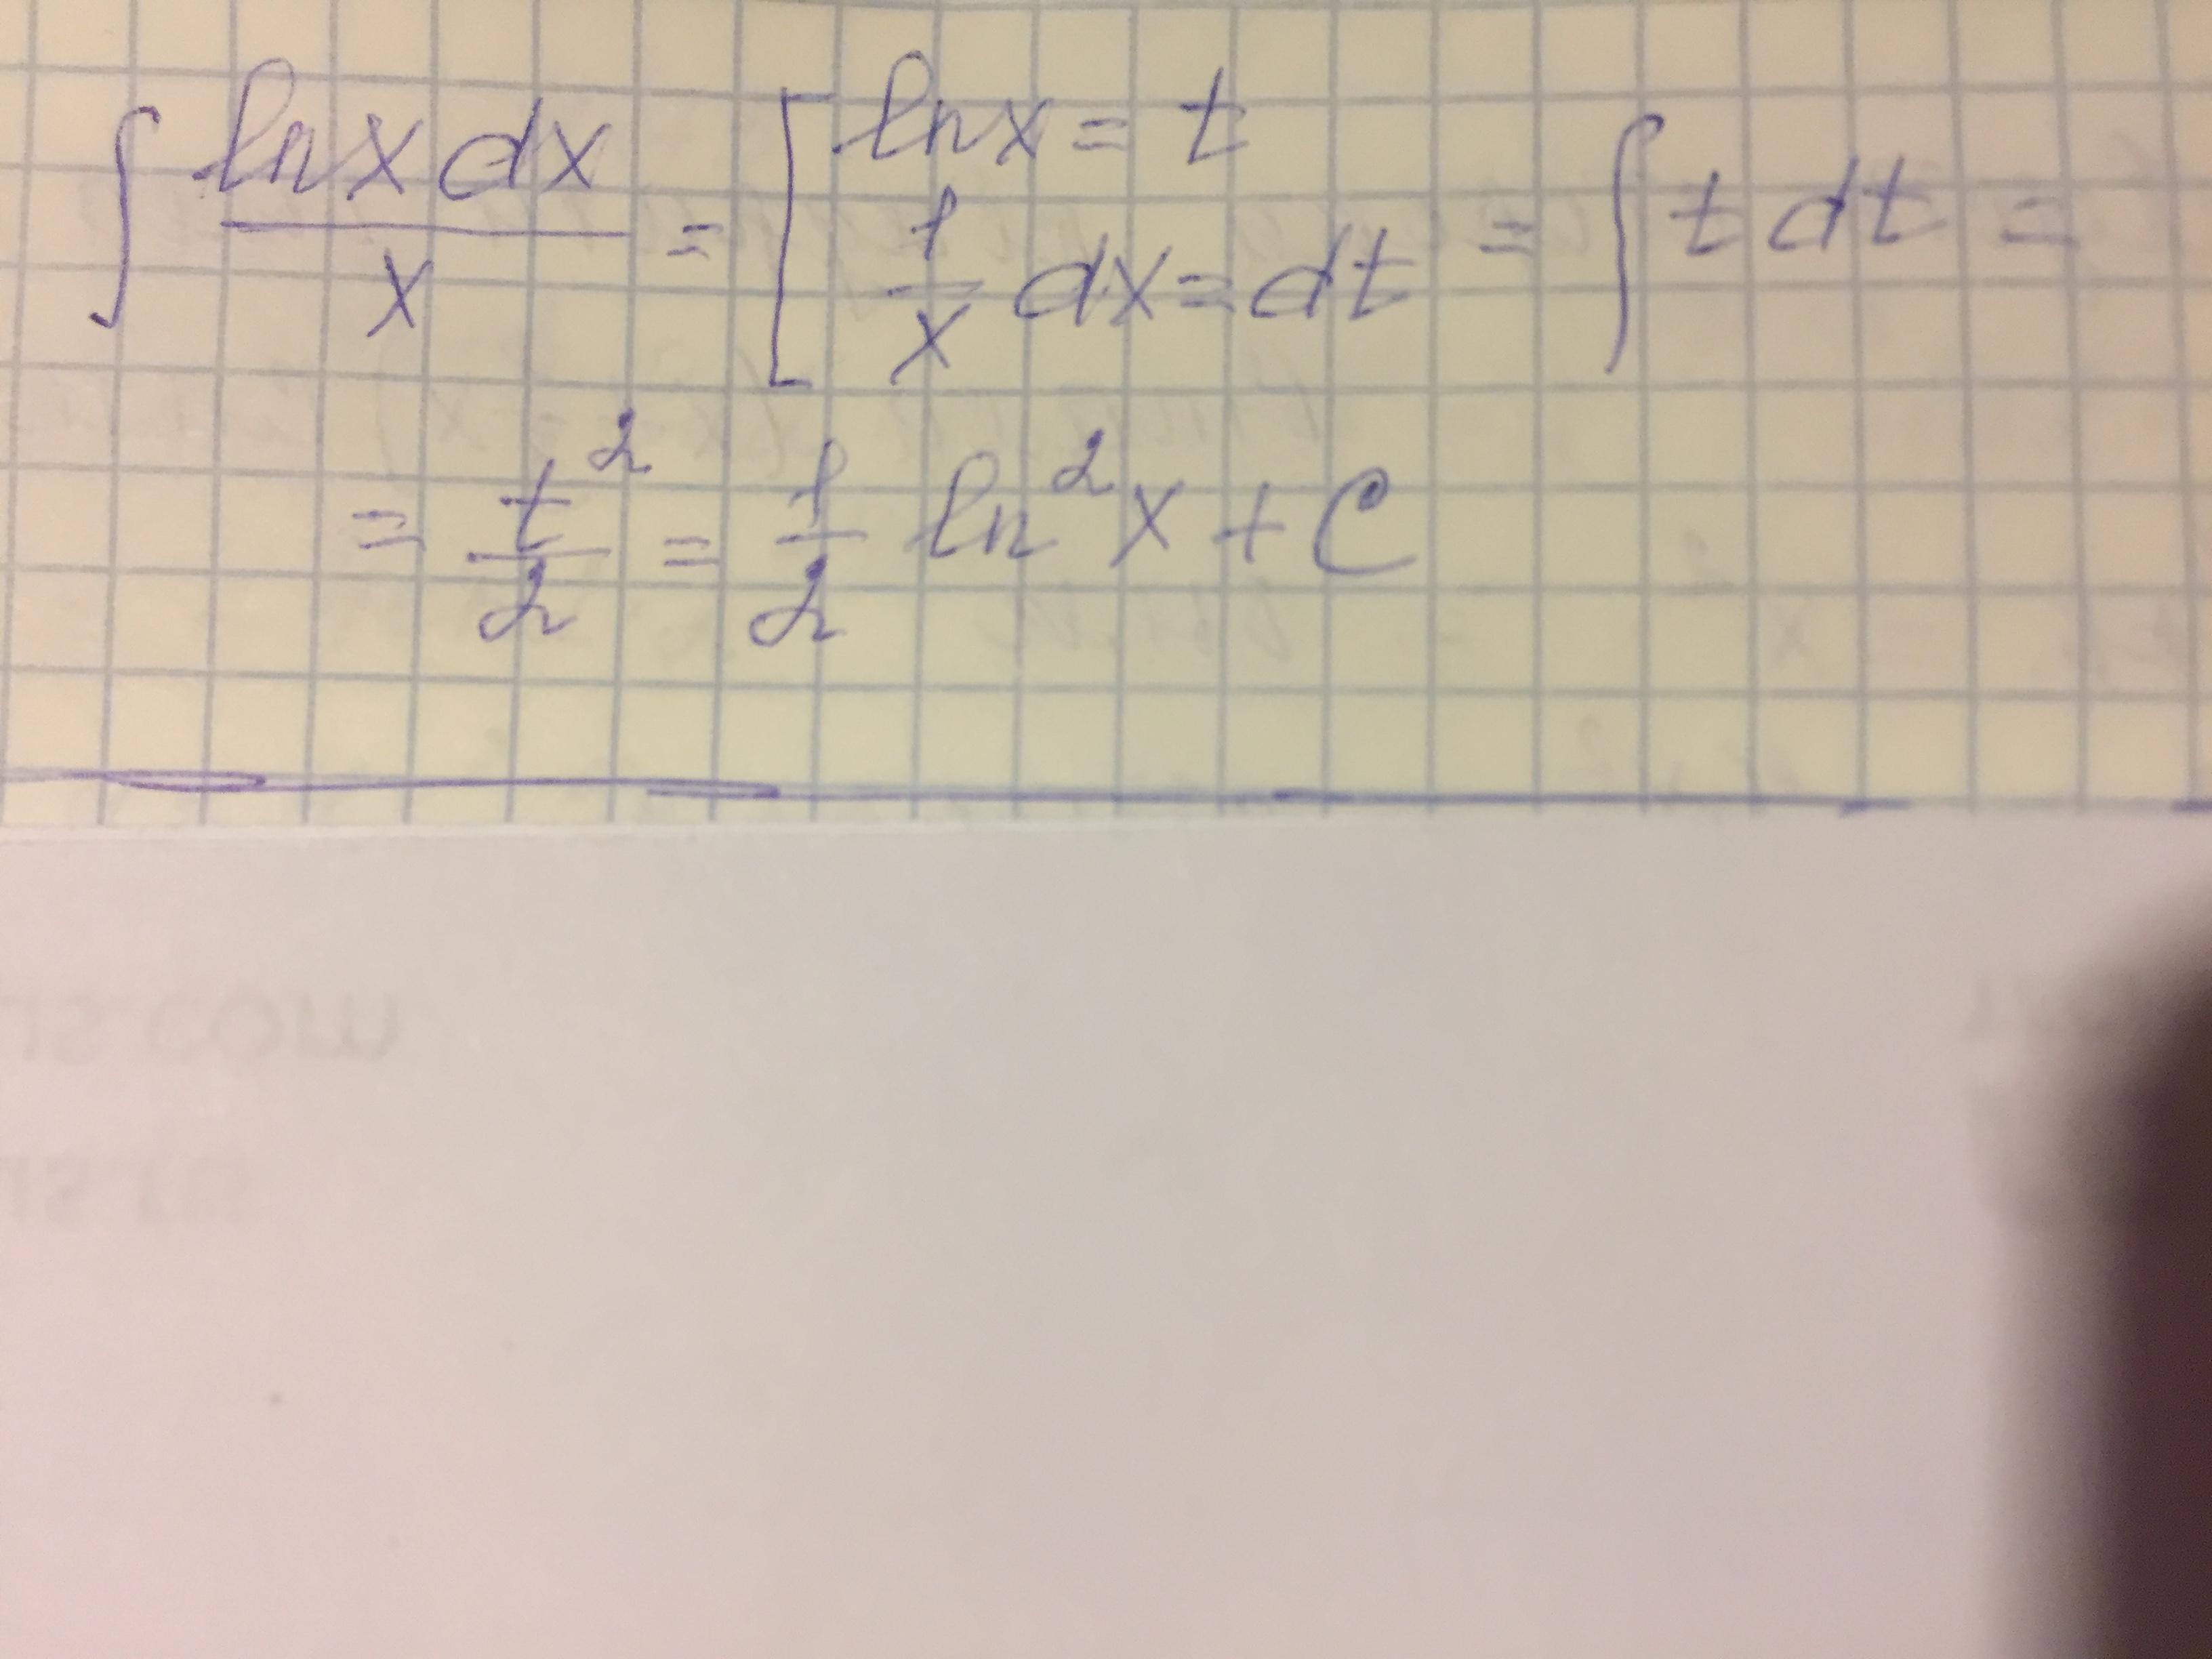 ∫ ln x dx / x = [ ln x = t
1/x dx = dt = ∫ t dt =
= t²/2 = 1/2 ln² x + C